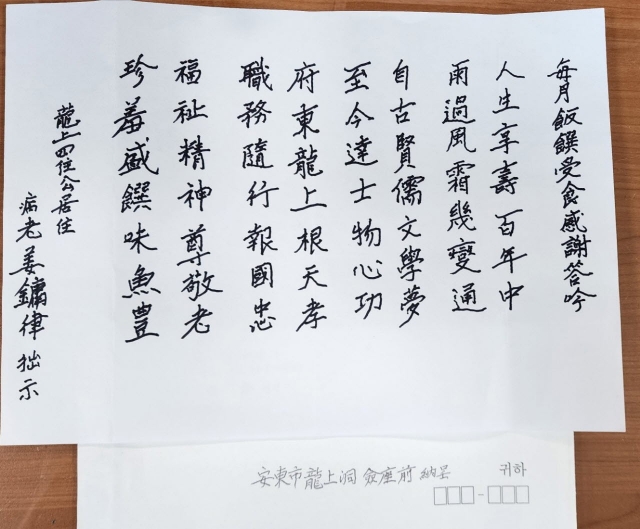 每月飯饌受食感謝答吟
人生享壽百年中
雨過風霜幾變通
自古賢儒文學夢
至今達士物心功
府東龍上根天孝
職務隨行報國忠
福祉精神尊敬老
珍羞盛饌味魚豊
龍上四住公居住
病老姜鏞律拙示
安東市龍上洞 僉座前 納呈 귀하